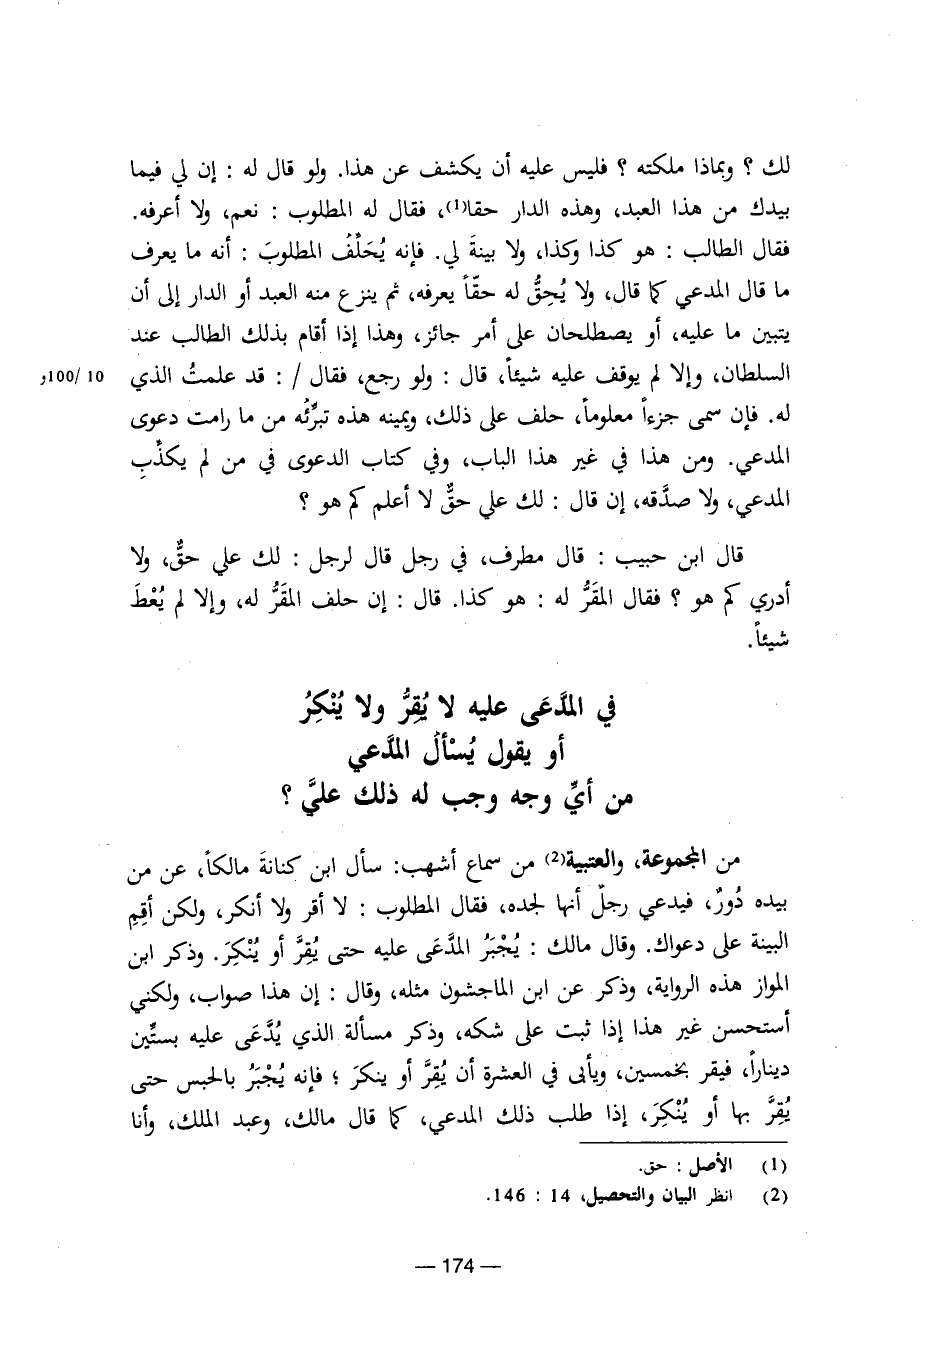 لك ؟ وبماذا ملكته ؟ فليس عليه أن يكشف عن هذا. ولو قال له : إن لي فيما
بيدك من هذا العبد، وهذه الدار حقا(1)، فقال له المطلوب : نعم، ولا أعرفه.
فقال الطالب : هو كذا وكذا، ولا بينةَ لي. فإنه يُحَلَّفُ المطلوبَ : أنه ما يعرف
ما قال المدعي كما قال، ولا يُحِقُّ له حقّاً يعرفه، ثم ينزع منه العبد أو الدار إلى أن
يتبين ما عليه، أو يصطلحان على أمر جائز، وهذا إذا أقام بذلك الطالب عند
السلطان، وإلا لم يوقف عليه شيئاً، قال : ولو رجع، فقال / : قد علمتُ الذي
10 /100و
له. فإن سمى جزءاً معلوماً، حلف على ذلك، ويمينه هذه تبرِّئُه من ما رامت دعوى
المدعي. ومن هذا في غير هذا الباب، وفي كتاب الدعوى في من لم يكذِّبِ
المدعي، ولا صدَّقه، إن قال : لك علي حقٌّ لا أعلم كم هو ؟
قال ابن حبيب : قال مطرف، في رجل قال لرجل : لك علي حقٌّ، ولا
أدري كم هو ؟ فقال المقَرُّ له : هو كذا. قال : إن حلف المقَرُّ له، وإلا لم يُعْطَ
شيئاً.
في المدَّعَى عليه لا يُقِرُّ ولا يُنْكِرُ
أو يقول يُسْألُ المدَّعي
من أيِّ وجه وجب له ذلك عليَّ ؟
من المجموعة، والعتبية(2) من سماع أشهب: سأل ابن كنانةَ مالكاً، عن من
بيده دُورٌ، فيدعي رجلٌ أنها لجده، فقال المطلوب : لا أقر ولا أنكر، ولكن أقِمِ
البينة على دعواك. وقال مالك : يُجْبَرُ المدَّعَى عليه حتى يُقِرَّ أو يُنْكِرَ. وذكر ابن
المواز هذه الرواية، وذكر عن ابن الماجشون مثله، وقال : إن هذا صواب، ولكني
أستحسن غير هذا إذا ثبت على شكه، وذكر مسألة الذي يُدَّعَى عليه بستِّين
ديناراً، فيقر بخمسين، ويأبى في العشرة أن يُقِرَّ أو ينكرَ ؛ فإنه يُجْبَرُ بالحبس حتى
يُقِرَّ بها أو يُنْكِرَ، إذا طلب ذلك المدعي، كما قال مالك، وعبد الملك، وأنا
(1) الأصل : حق.
(2) انظر البيان والتحصيل، 14 : 146.
— 174 —